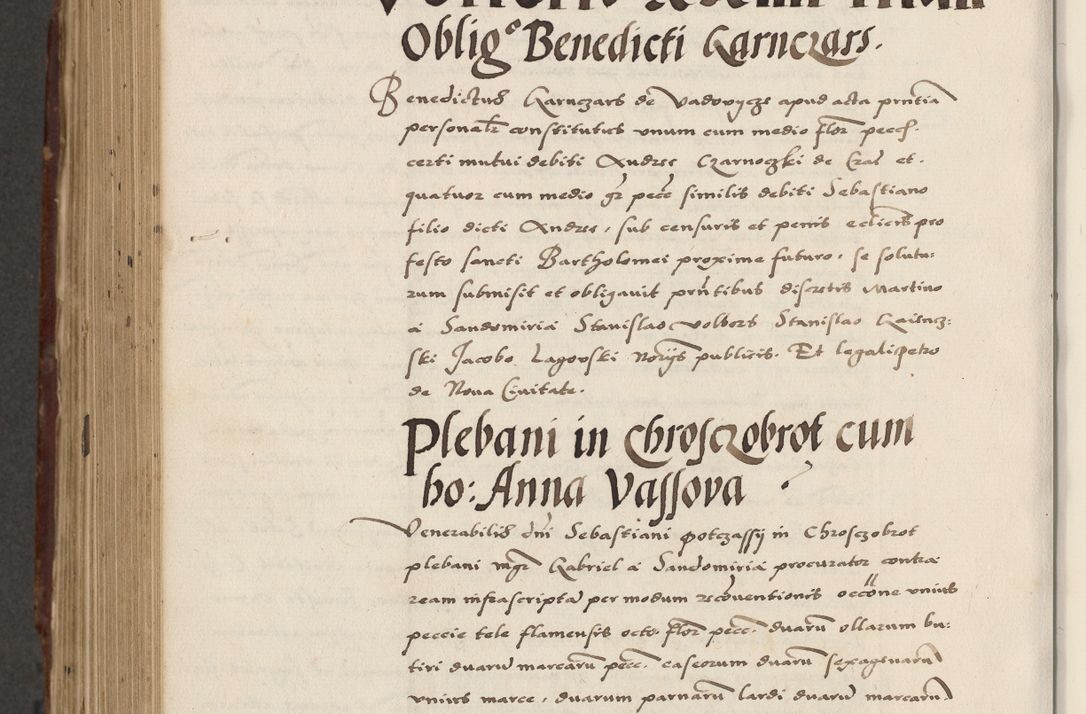 Obligᵒ Benedicti Karnczars.
Benedictus Karnczars de Vadovycze apud acta prntia
personalr constitutus vnum cum medio flor pecc.
certi mutui debiti Andree Czarnoczki de Crac et.
quatuor cum medio gr pecc similis debiti Sebastiano
filio dicti Andree, sub censuris et penis ecclicis pro
festo sancti Bartholomei proxime futuro, se solutu:
rum submisit et obligauit prntibus discretis Martino
a Sandomiria Stanislao Volbors Stanislao
ski Jacobo Lagovski Norijs publicis. Et legali petro
de Noua Ciuitate.
Plebani in Chrosczobrot cum
ho: Anna Vassova
Venerabilis dni Sebastiani potczassij in Chrosczobrot
plebani mgr Gabriel a Sandomiria procurator contra
ream infrascripta per modum recōuentionis occōne vnius
peccie tele flamensis octo flor pecc. duarū ollarum bu:
tiri duarū marcarū pecc. caseorum duarū sexagenarū
vnius marce, duarum parnarū lardi duarū marcarū